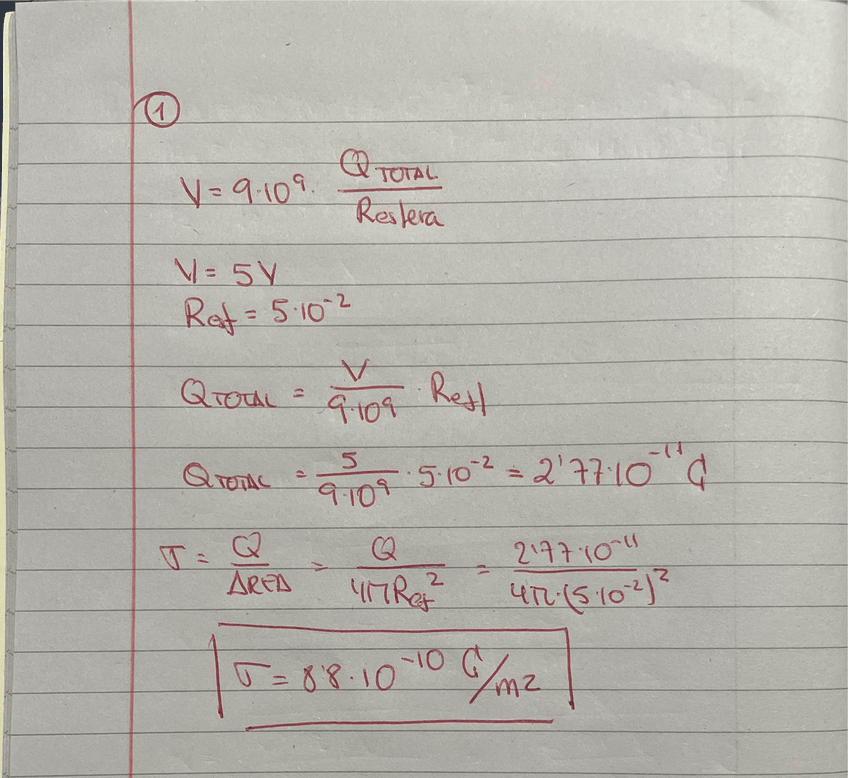 1
V = 9·10⁹· Q TOTAL / Resfera
V = 5V
Ref = 5·10⁻²
Q TOTAL = V / 9·10⁹ · Resf
Q TOTAL = 5 / 9·10⁹ · 5·10⁻² = 2'77·10⁻¹¹ C
σ = Q / AREA = Q / 4πRef² = 2'77·10⁻¹¹ / 4π·(5·10⁻²)²
σ = 8'8·10⁻¹⁰ C/m2